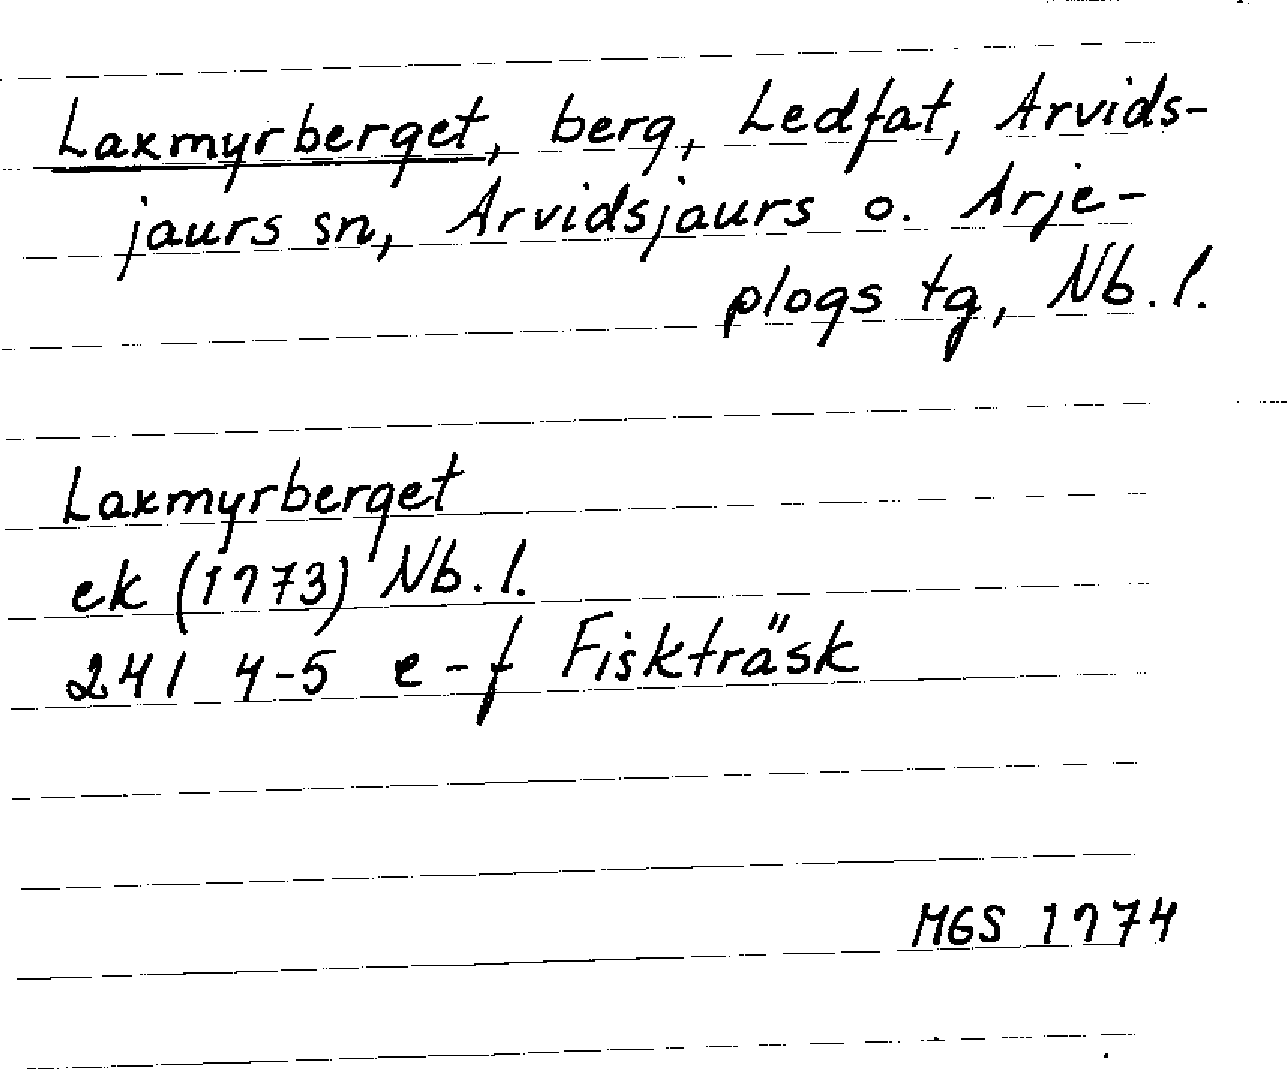 Laxmyrberget, berg, Ledfat, Arvids-
jaurs sn, Arvidsjaurs o. Arje-
plogs tg, Nb. l.
Laxmyrberget
ek (1973) Nb. l.
24 I 4-5 e-f Fiskträsk
MGS 1974